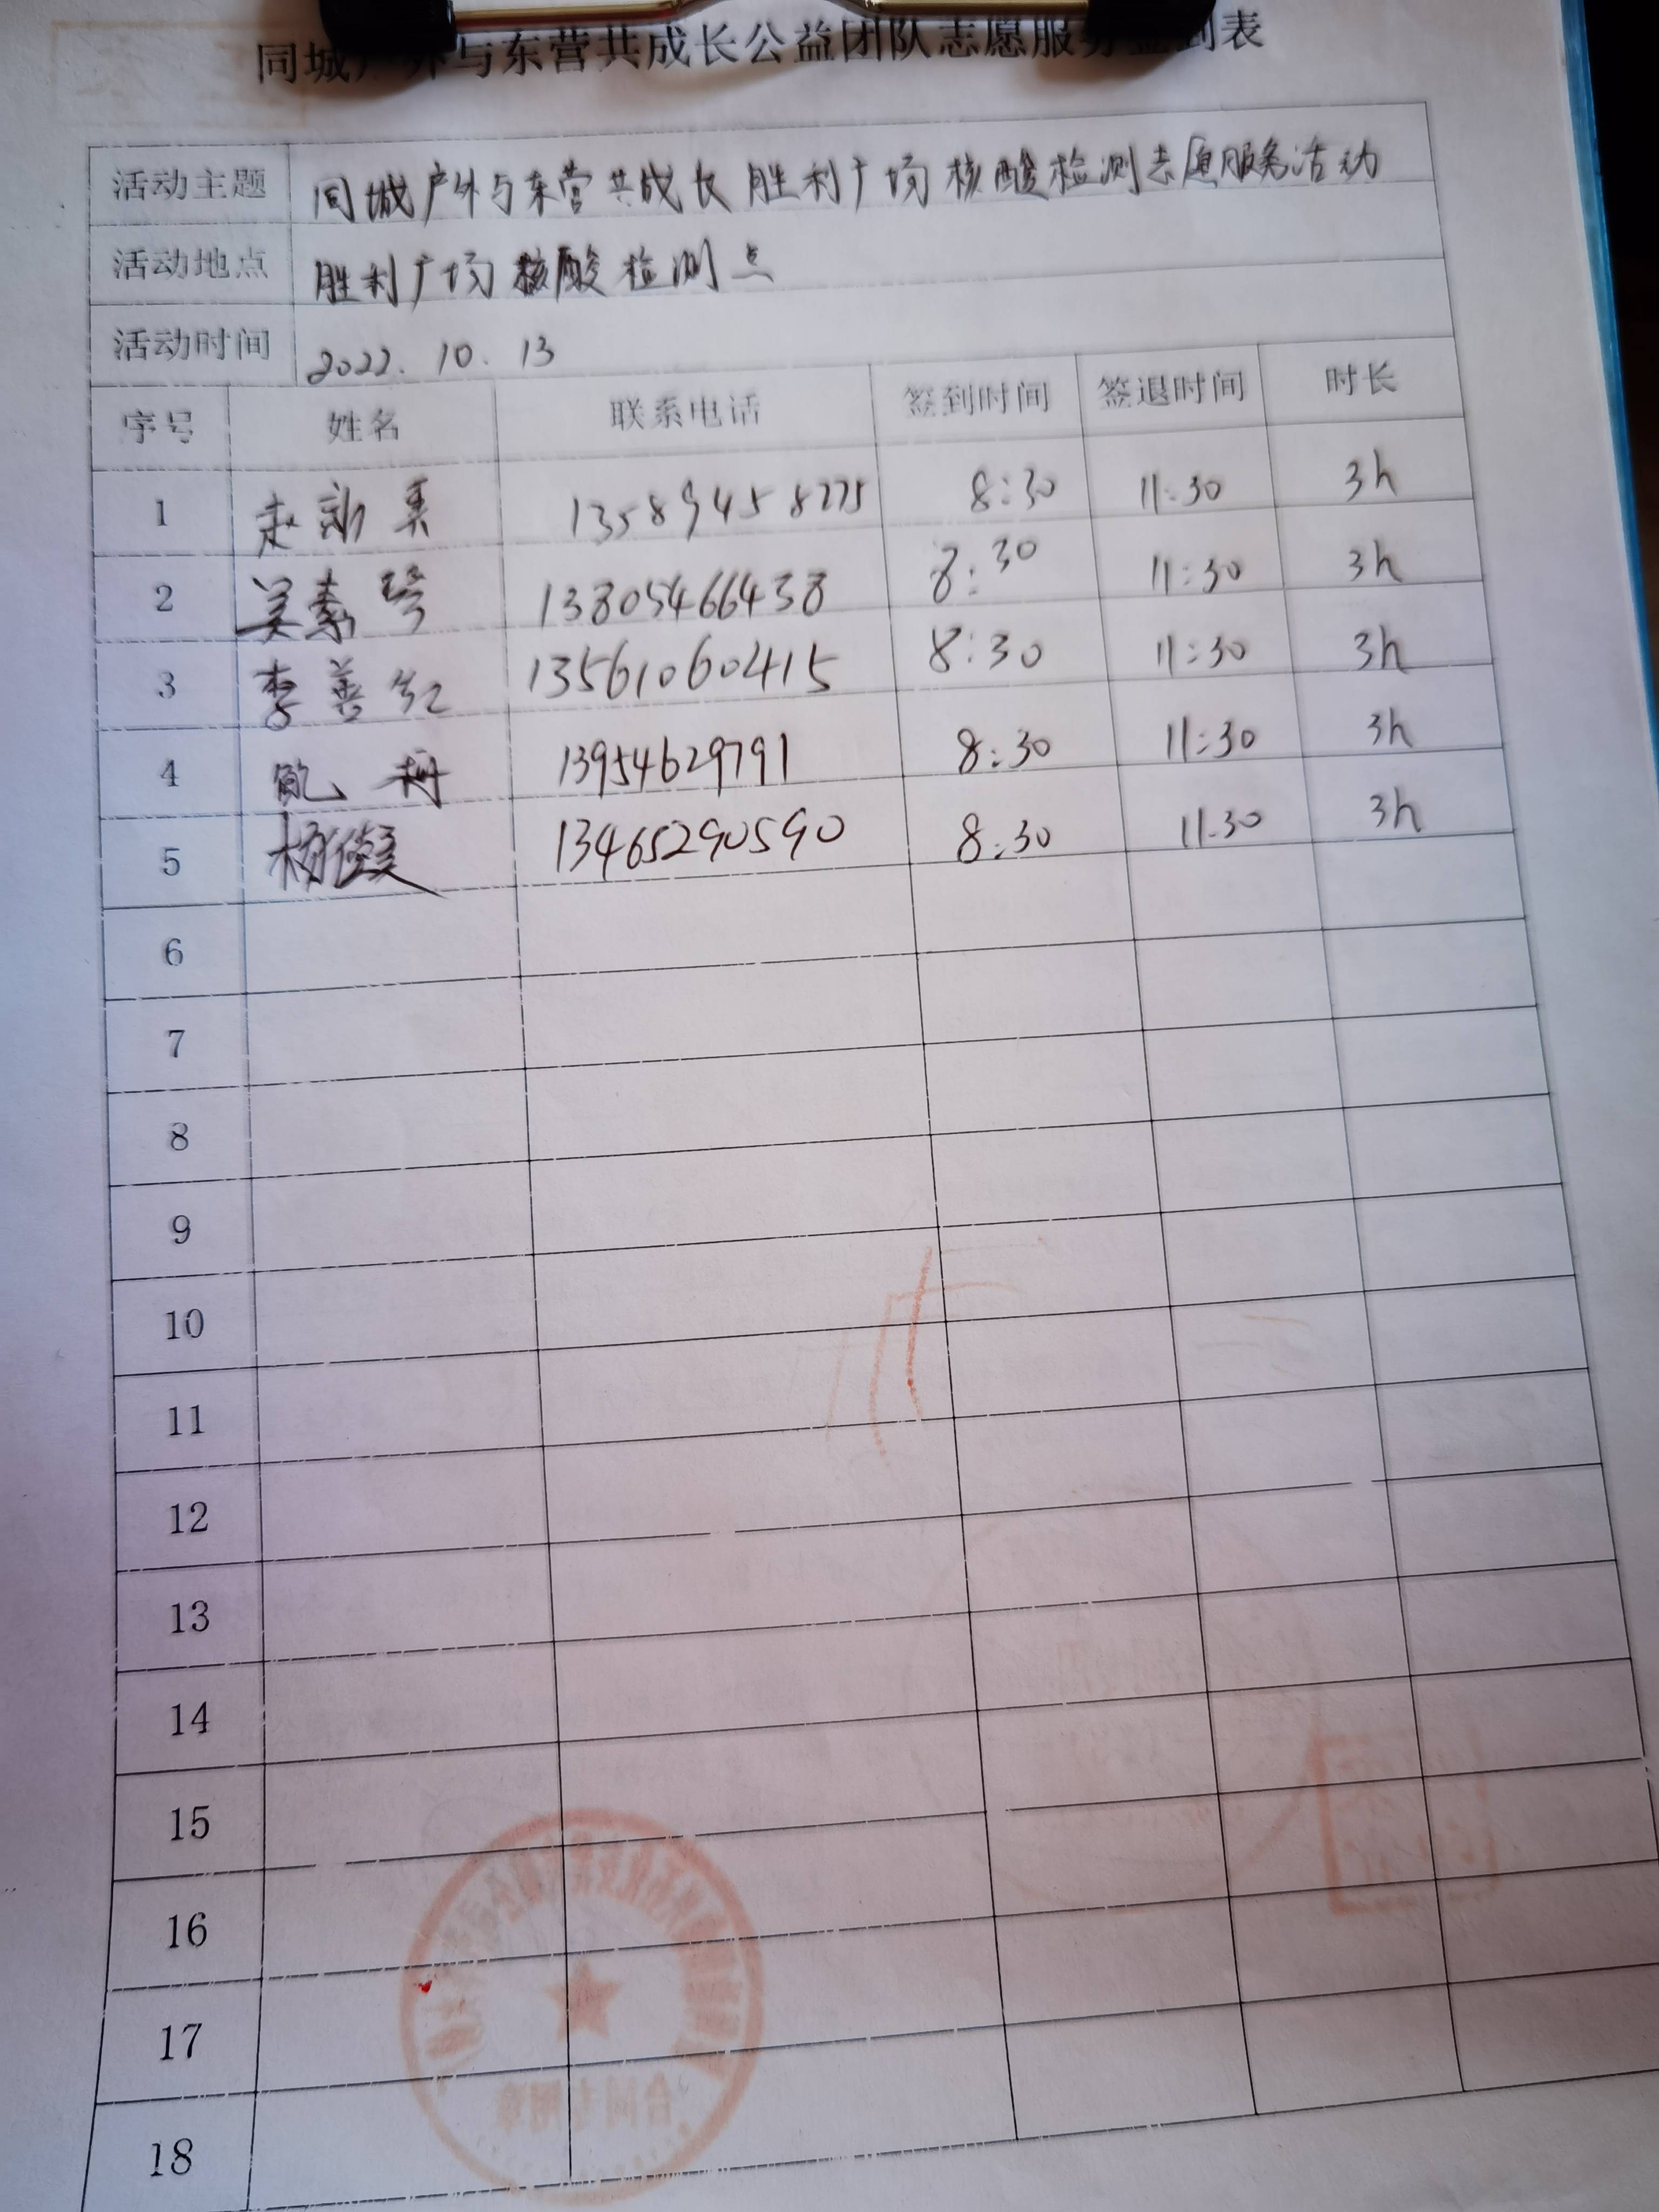 同城户外与东营共成长公益团队志愿服务签到表
活动主题 同城户外与东营共成长胜利广场核酸检测志愿服务活动
活动地点 胜利广场核酸检测点
活动时间 2022.10.13
序号 姓名 联系电话 签到时间 签退时间 时长
1 赵新美 13589458275 8:30 11:30 3h
2 吴素琴 13805466438 8:30 11:30 3h
3 李善红 13561060415 8:30 11:30 3h
4 13954629791 8:30 11:30 3h
5 杨俊美 13465290590 8:30 11:30 3h
6
7
8
9
10
11
12
13
14
15
16
17
18
合同专用章